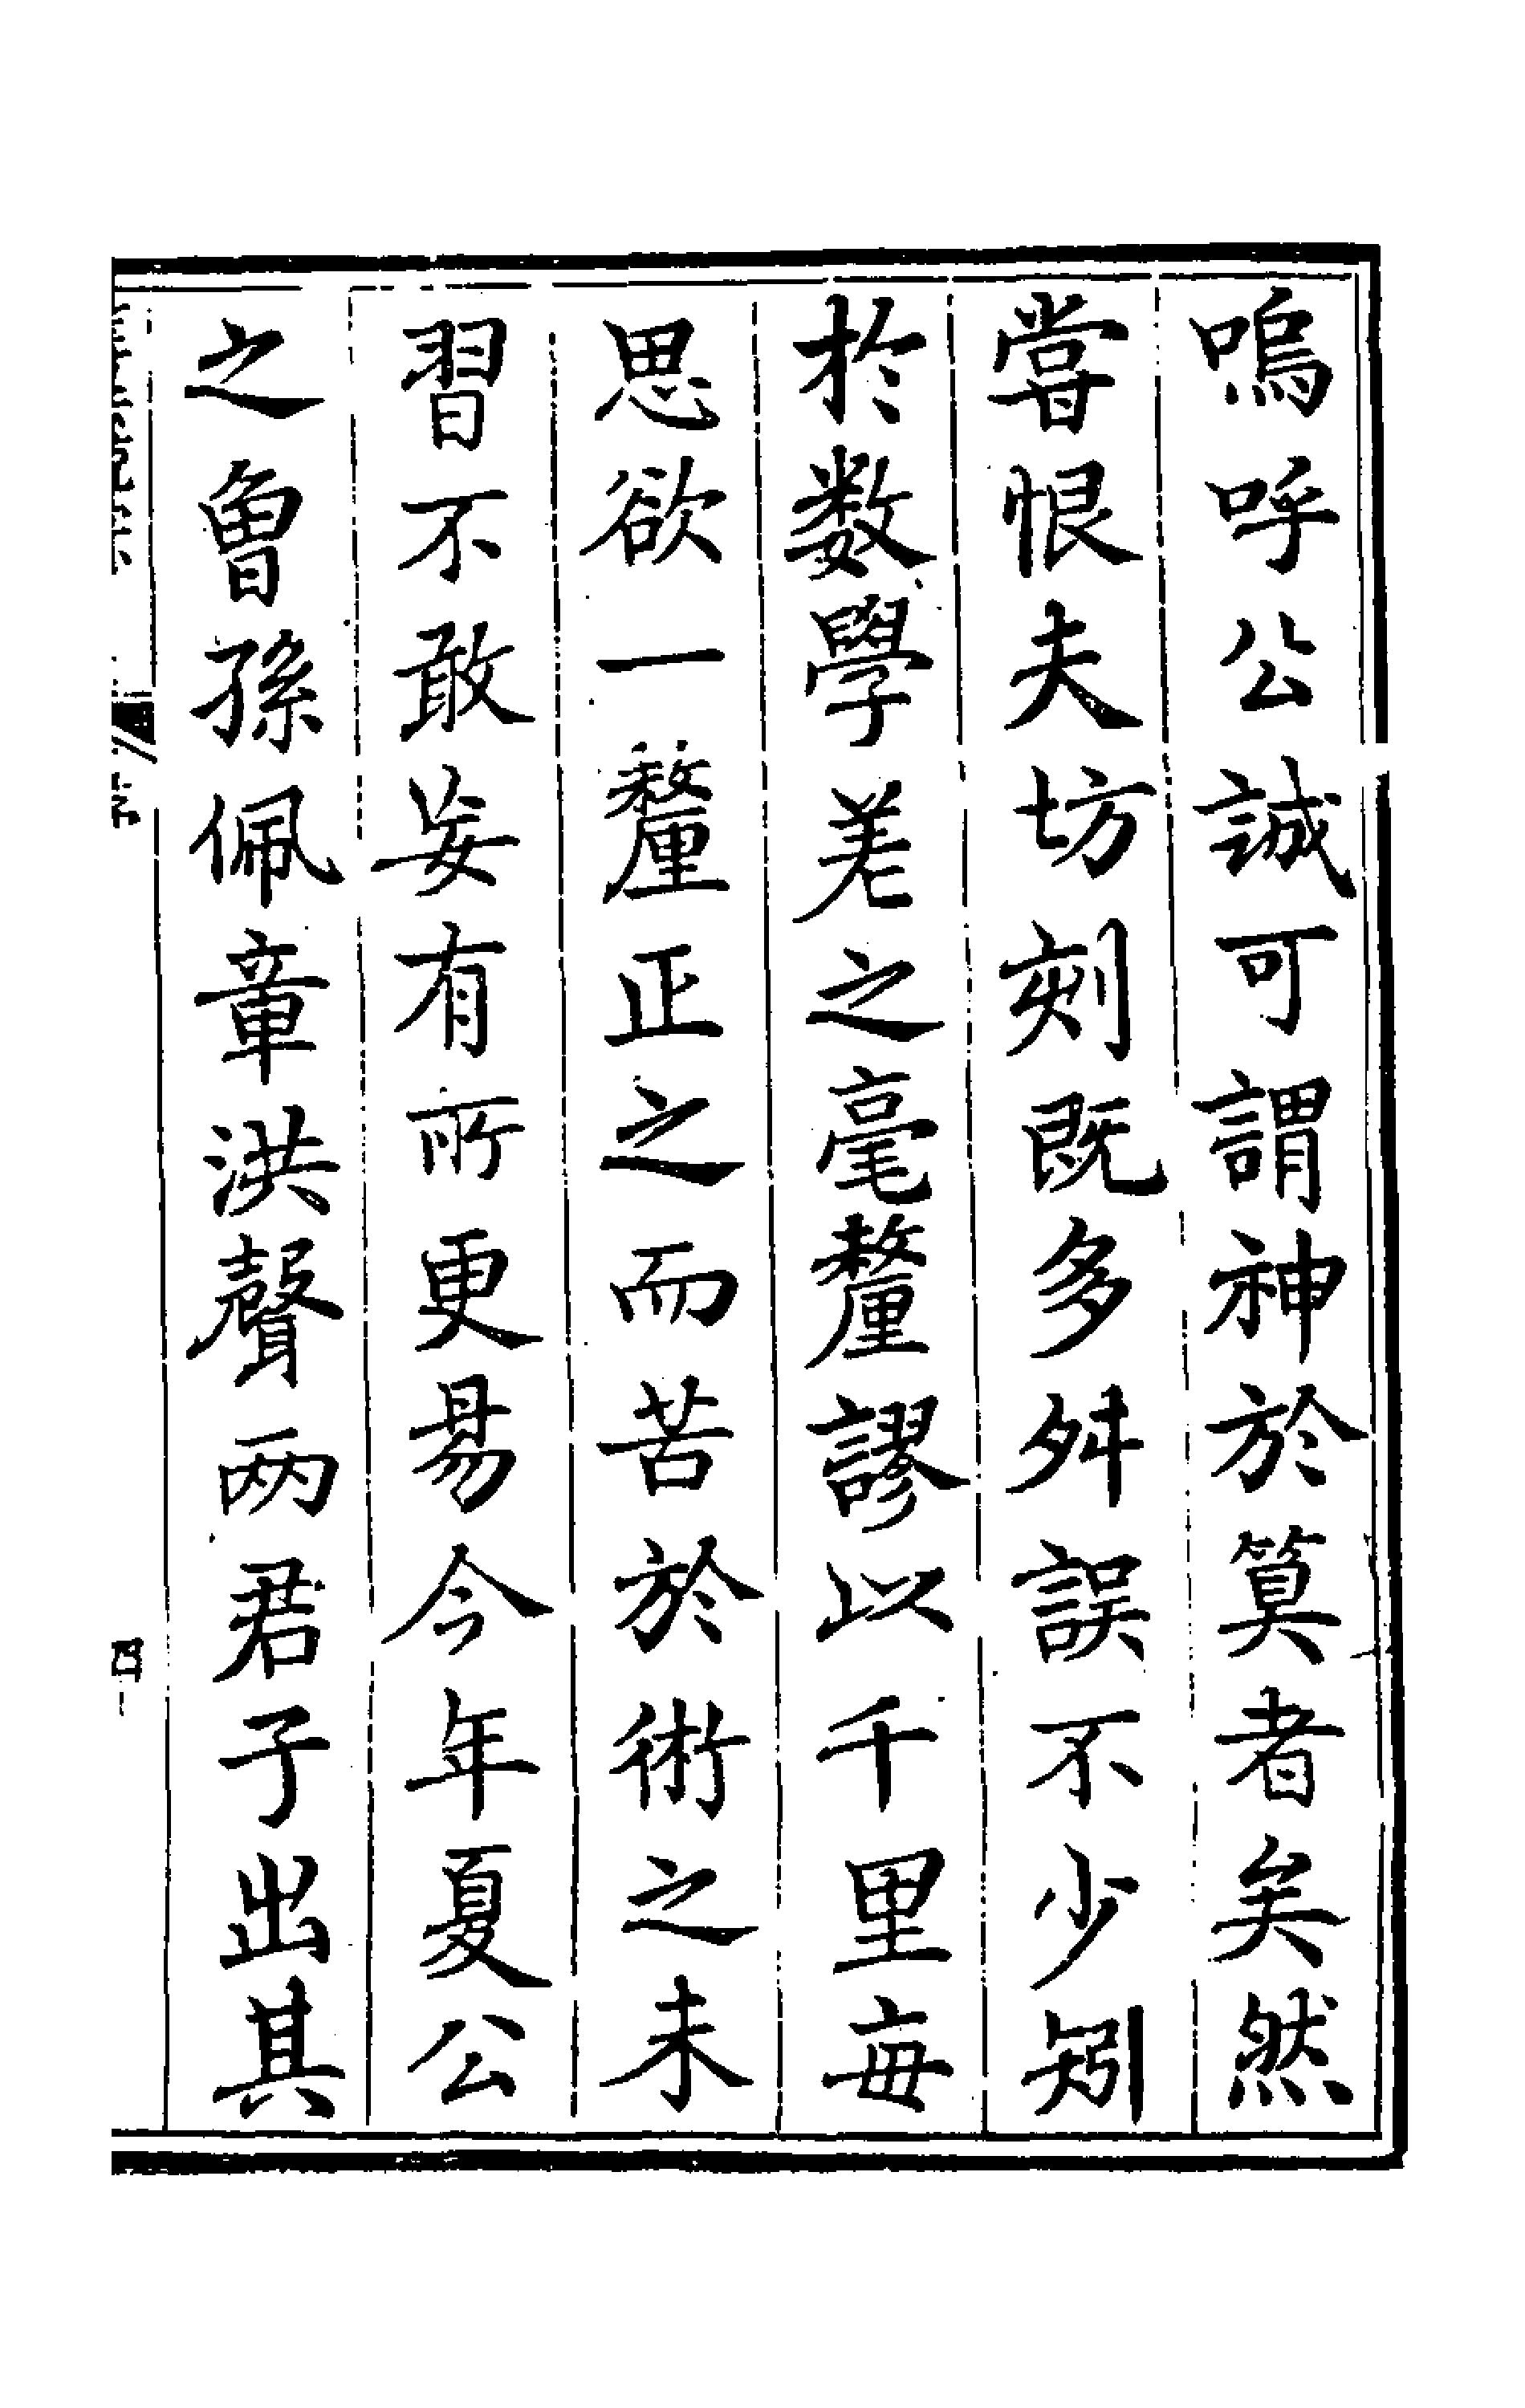 嗚呼公誠可謂神於算者矣然
嘗恨夫坊刻既多舛誤不少矧
於数學差之毫釐謬以千里每
思欲一釐正之而苦於術之未
習不敢妄有所更易今年夏公
之曾孫佩章洪聲兩君子出其
序
四